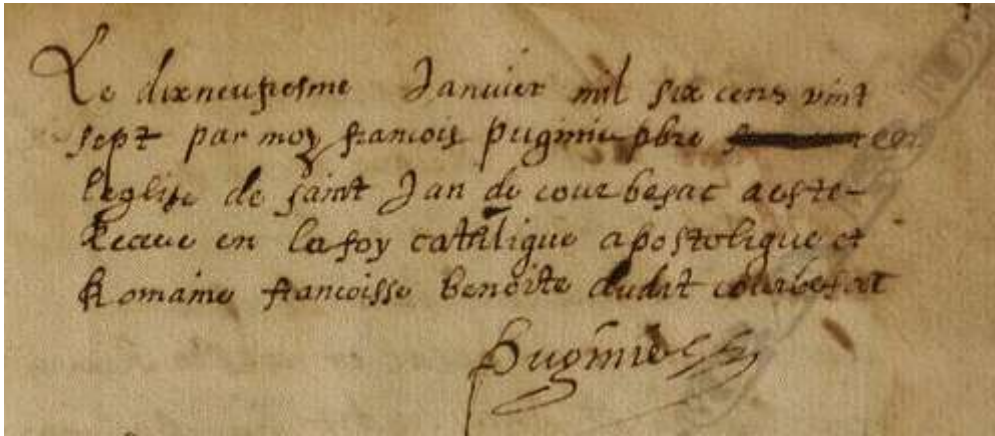 Le dixneufiesme Janvier mil six cens vint
sept par moy francois pugimie pbre
leglise de saint Jan de courbesac a este
Receue en la foy catolique apostolique et
Romaine francoisse benoite dudit courbesac
Pugimie